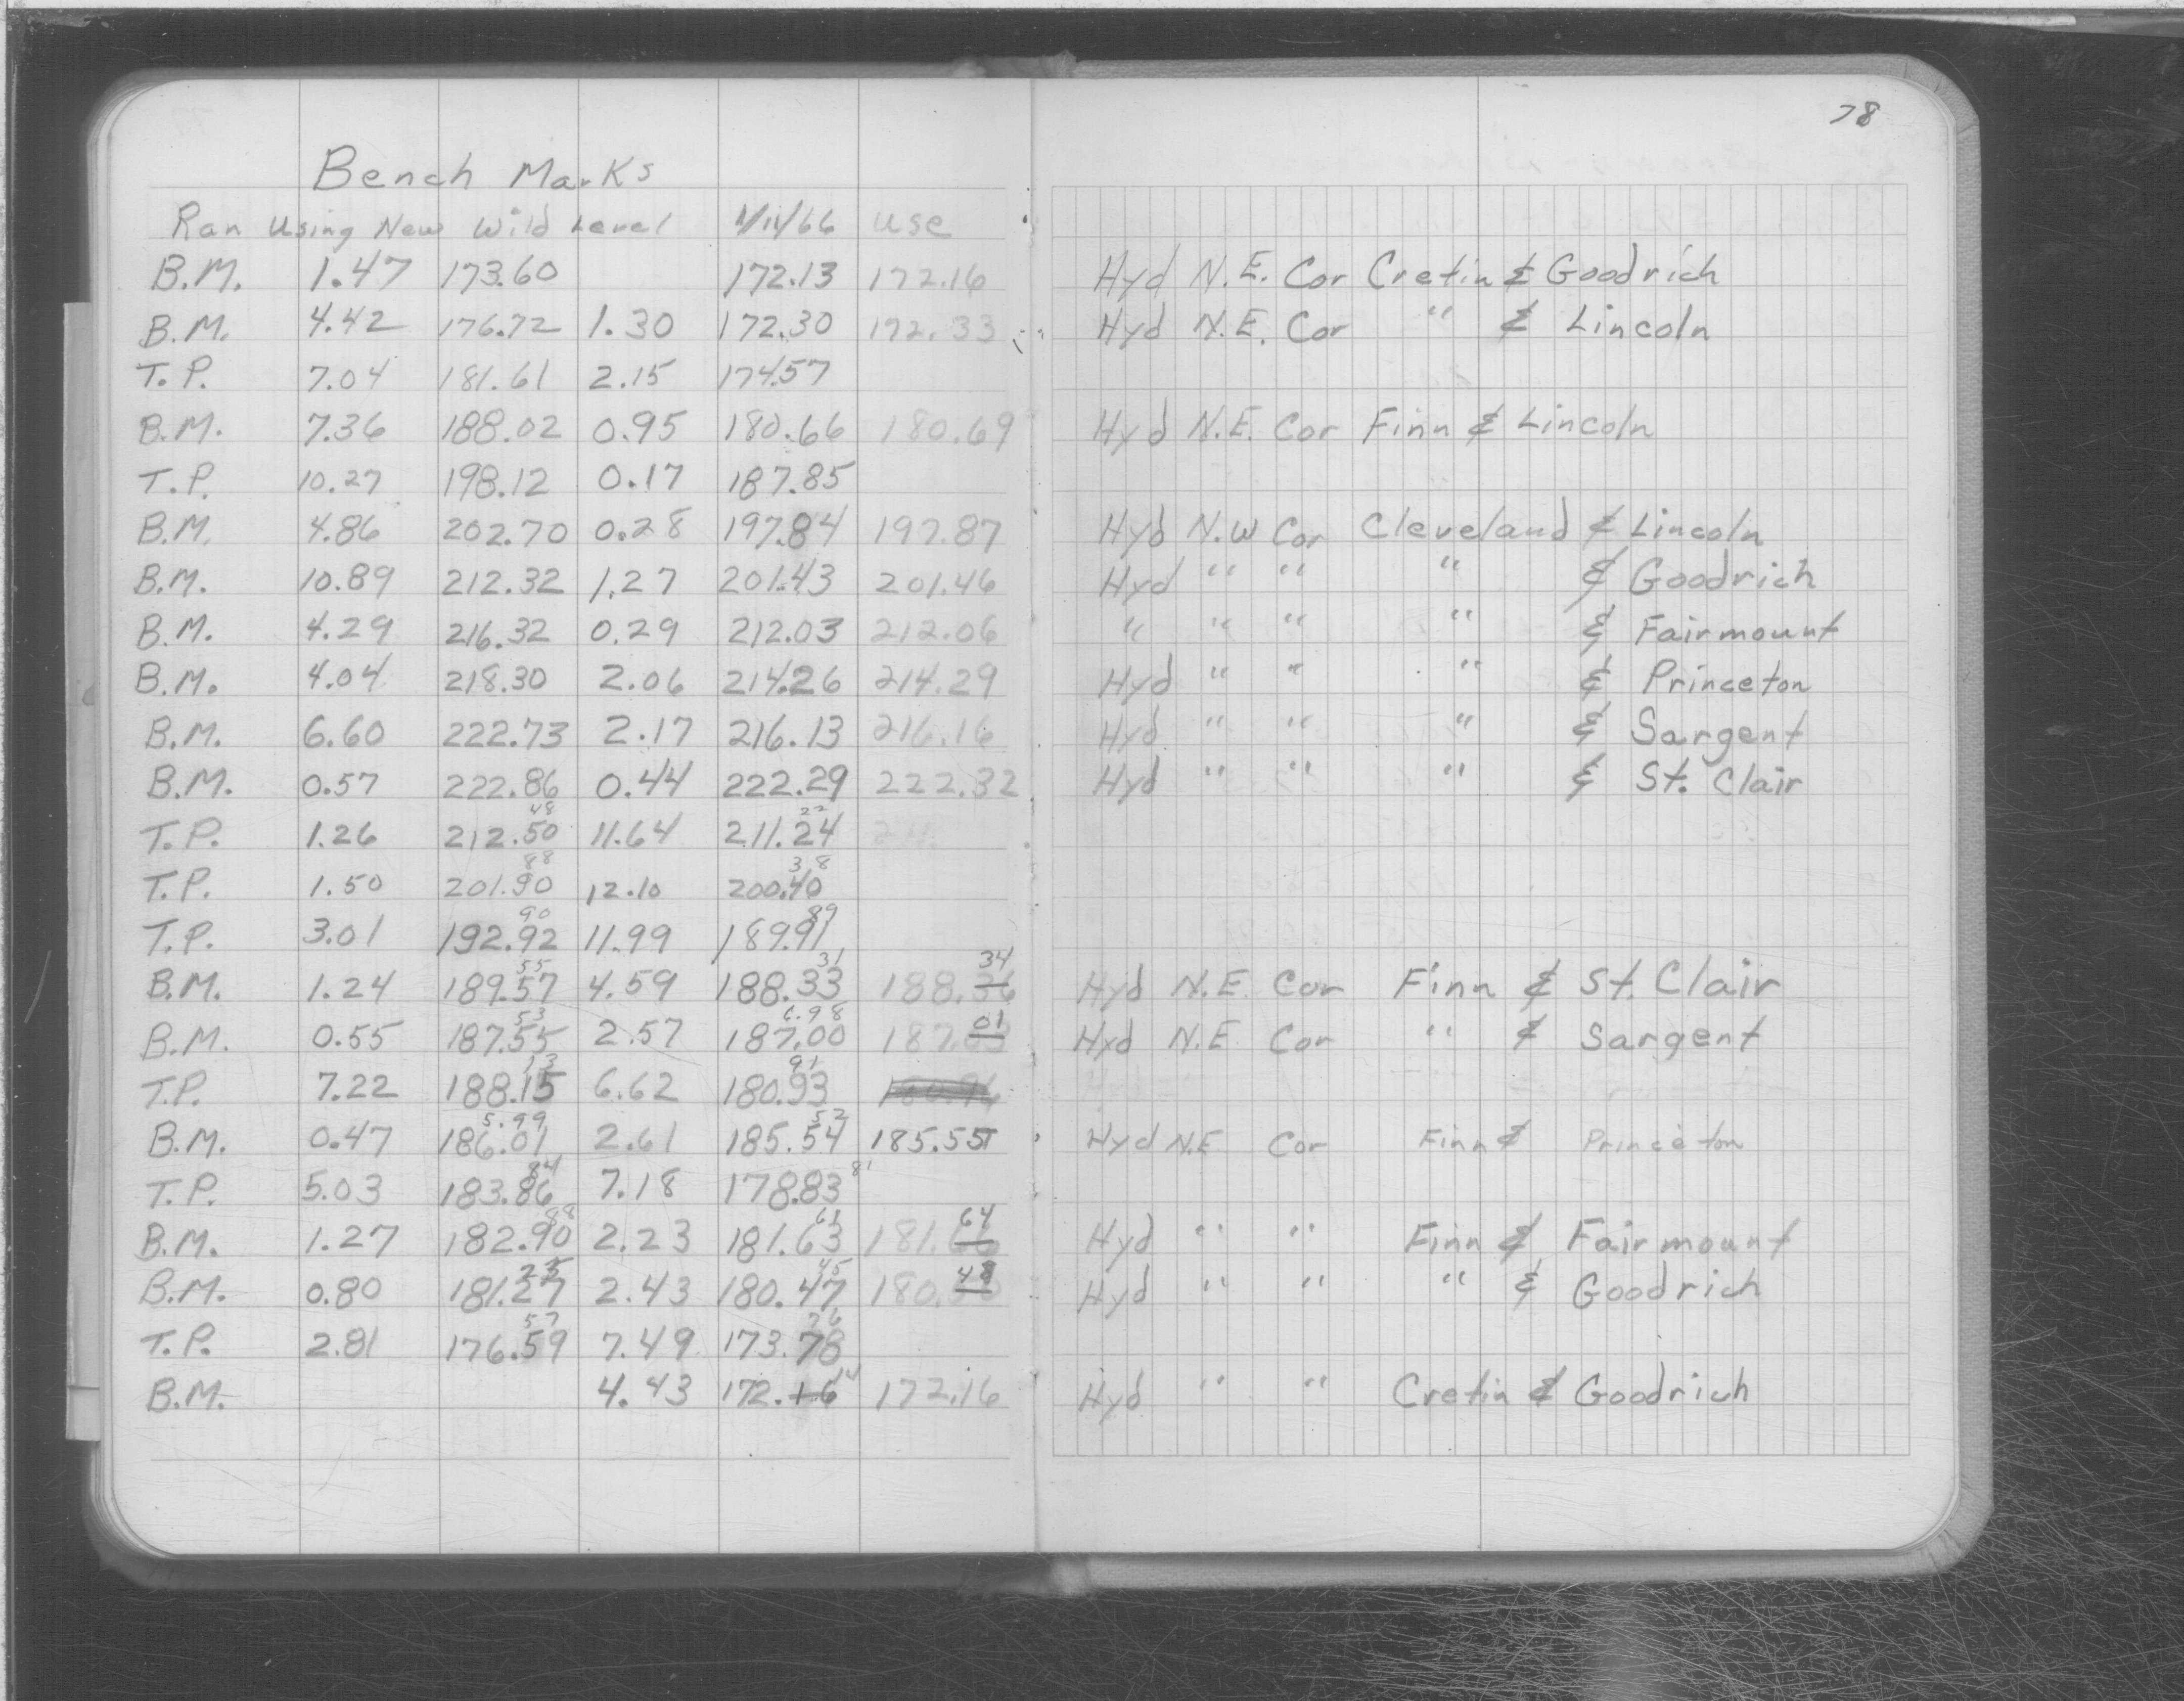 78
Bench Marks
Ran Using New Wild Level 1/11/66 use
B.M. 1.47 173.60 172.13 172.16 Hyd N.E. Cor Cretin & Goodrich
B.M. 4.42 176.72 1.30 172.30 172.33 Hyd N.E. Cor " & Lincoln
T.P. 7.04 181.61 2.15 174.57
B.M. 7.36 188.02 0.95 180.66 180.69 Hyd N.E. Cor Finn & Lincoln
T.P. 10.27 198.12 0.17 187.85
B.M. 4.86 202.70 0.28 197.84 197.87 Hyd N.W Cor Cleveland & Lincoln
B.M. 10.89 212.32 1.27 201.43 201.46 Hyd " " " & Goodrich
B.M. 4.29 216.32 0.29 212.03 212.06 " " " " & Fairmount
B.M. 4.04 218.30 2.06 214.26 214.29 Hyd " " " & Princeton
B.M. 6.60 222.73 2.17 216.13 216.16 Hyd " " " & Sargent
B.M. 0.57 222.86 0.44 222.29 222.32 Hyd " " " & St. Clair
48 22
T.P. 1.26 212.50 11.64 211.24
88 38
T.P. 1.50 201.90 12.10 200.40
90 89
T.P. 3.01 192.92 11.99 189.91
55 31 34
B.M. 1.24 189.57 4.59 188.33 188.36 Hyd N.E. Cor Finn & St. Clair
53 6.98 01
B.M. 0.55 187.55 2.57 187.00 187.03 Hyd N.E Cor " & Sargent
13 91
T.P. 7.22 188.15 6.62 180.93
5.99 52
B.M. 0.47 186.01 2.61 185.54 185.55 Hyd N.E Cor Finn & Princeton
84 81
T.P. 5.03 183.86 7.18 178.83
88 61 64
B.M. 1.27 182.90 2.23 181.63 181.66 Hyd " " Finn & Fairmount
25 45 48
B.M. 0.80 181.27 2.43 180.47 180.50 Hyd " " " & Goodrich
57 76
T.P. 2.81 176.59 7.49 173.78
14
B.M. 4.43 172.16 172.16 Hyd " " Cretin & Goodrich